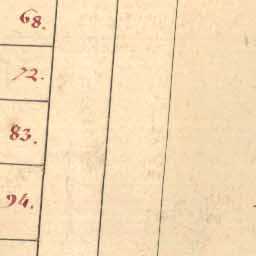 68.
72.
83.
94.